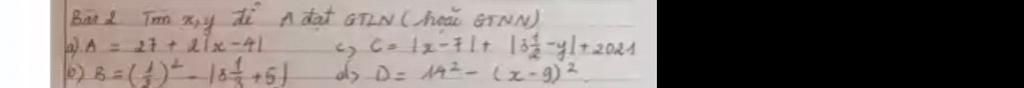 Bài 2 Tìm x, y để A đạt GTLN (hoặc GTNN)
a) A = 27 + 2|x - 4|   c, C = |x - 7| + |3 1/2 - y| + 2021
b) B = (1/3)² - |3 1/3 + 5|   d, D = 14² - (x - 9)²